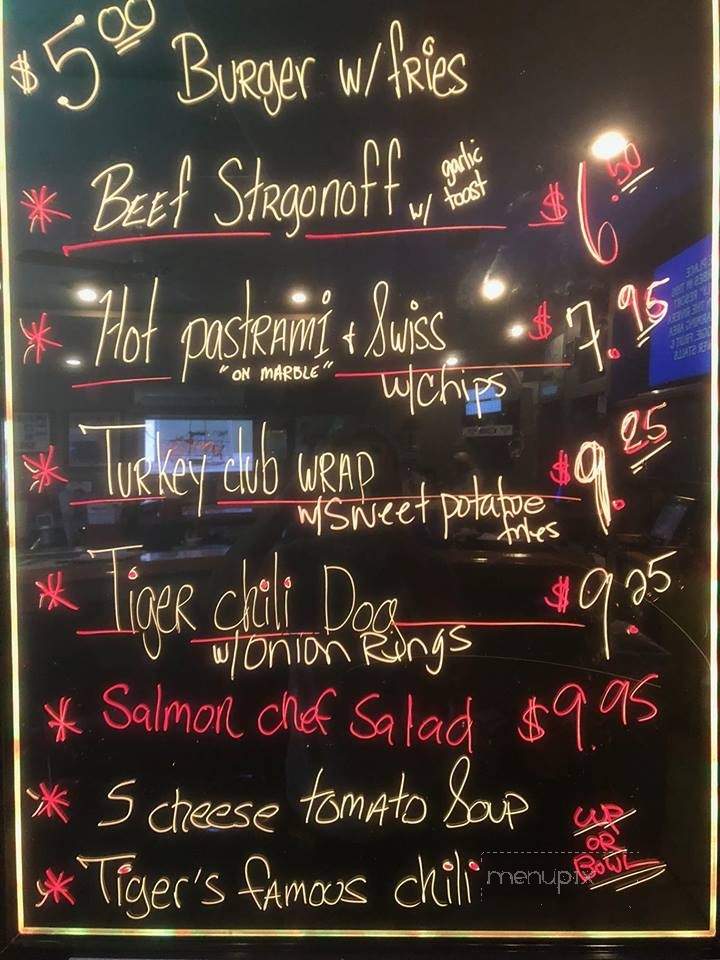 $5.00 Burger w/ fries
* Beef Strgonoff w/ garlic toast $6.50
* Hot pastrami + Swiss $7.95
"on marble" w/chips
* Turkey club wrap $9.25
w/Sweet potatoe fries
* Tiger chili Dog $9.25
w/onion Rings
* Salmon chef Salad $9.95
* 5 cheese tomato Soup
* Tiger's famous chili
cup
or
Bowl
menupix